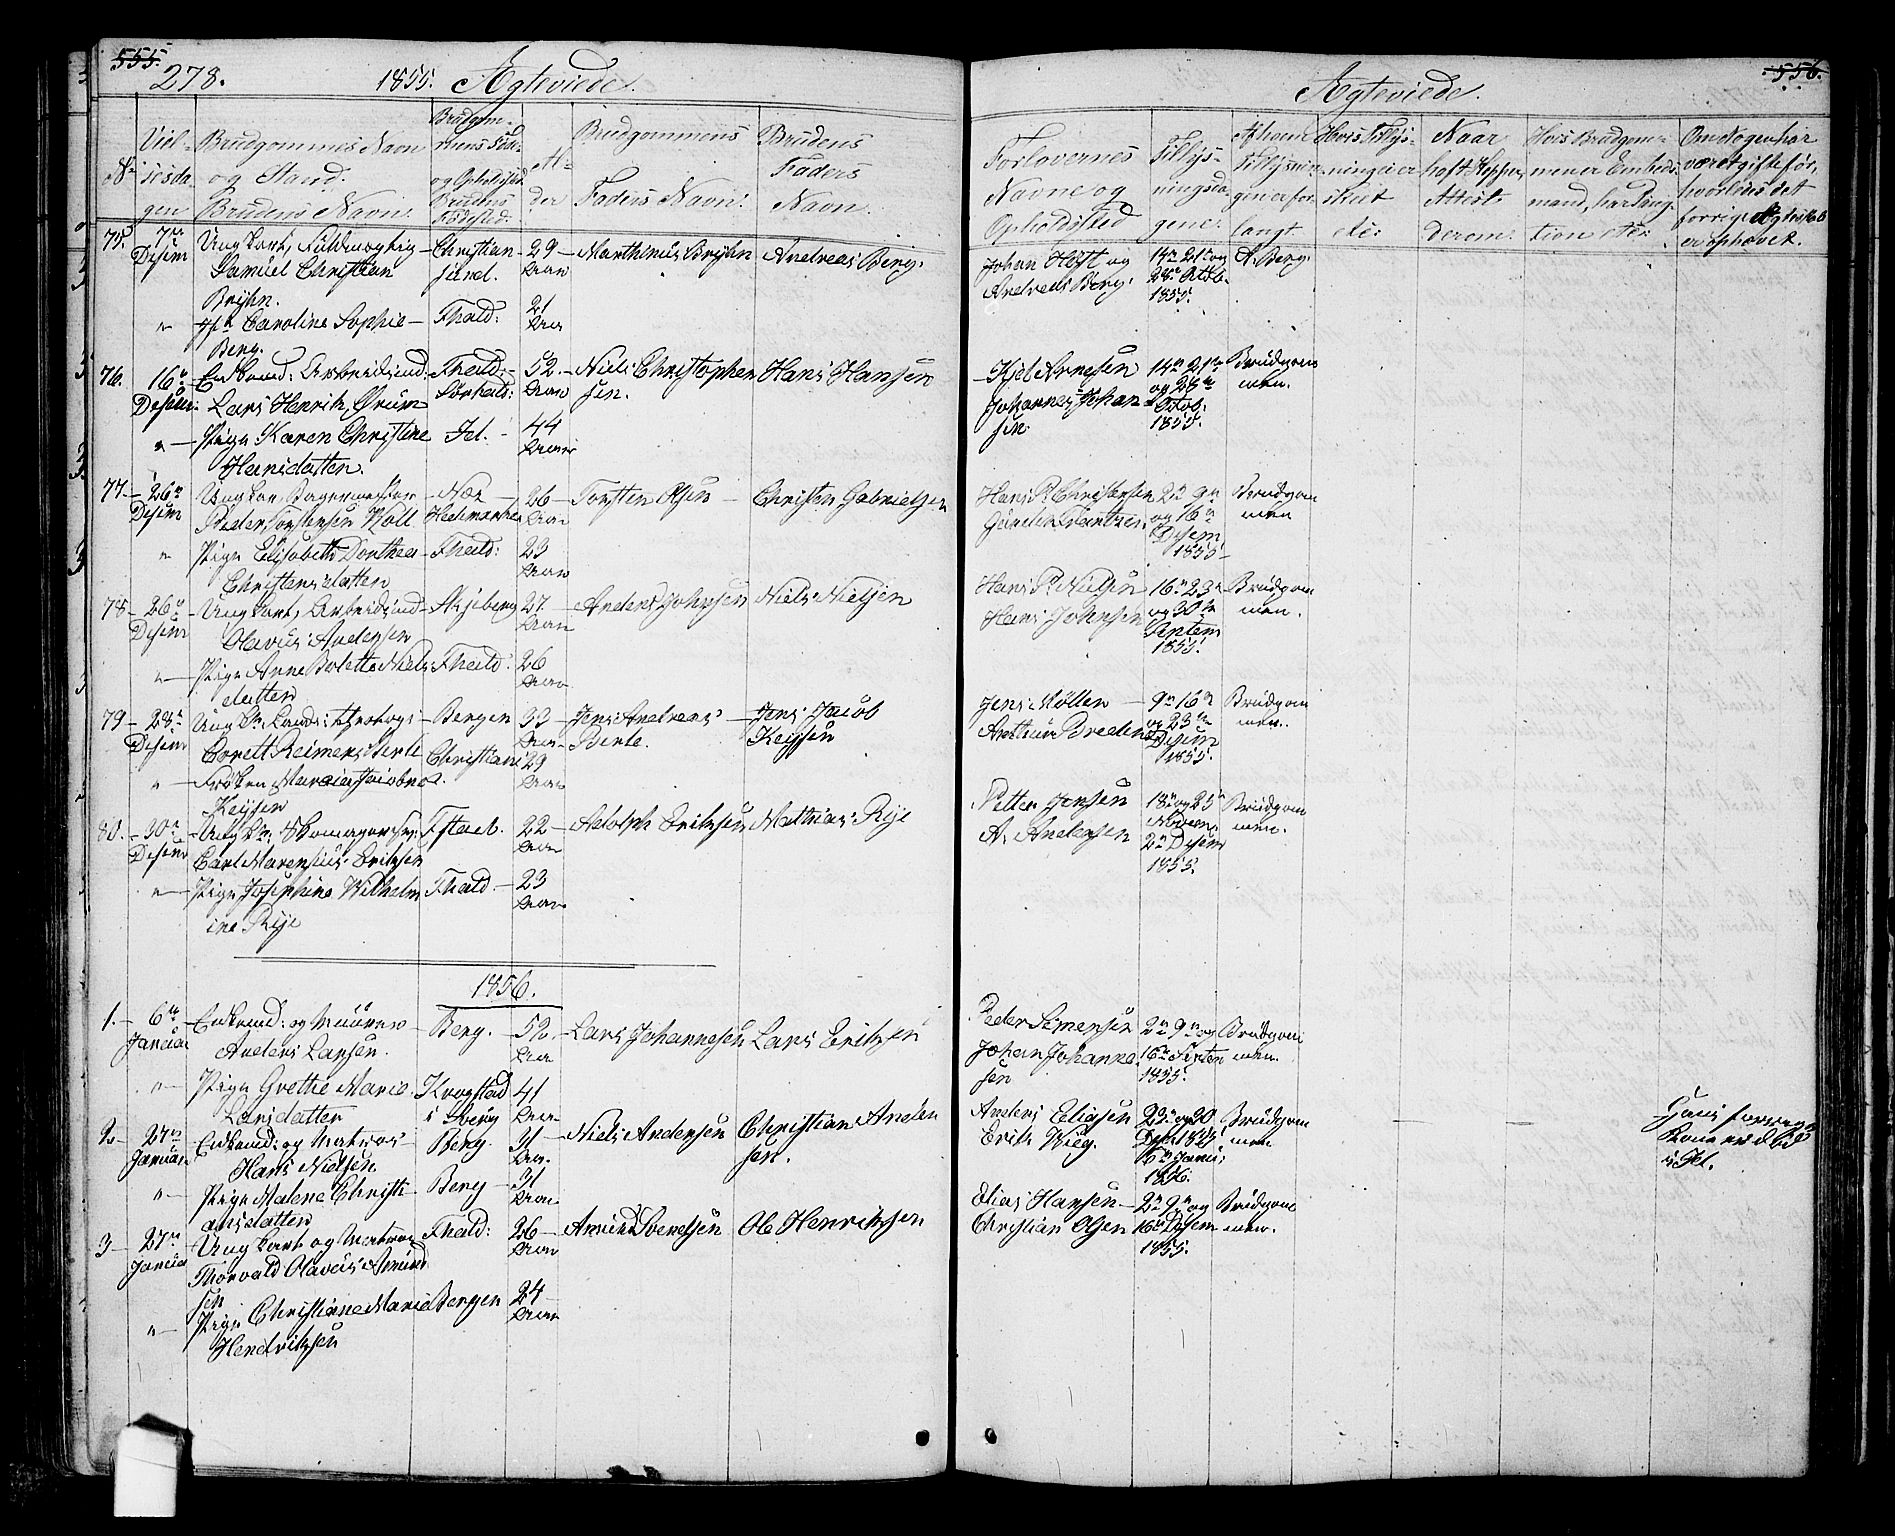 555.
278. 1855. Ægteviede.
No
Viel-
sesda
gen
Brudgommens Navn
og Stand.
Brudens Navn.
Brudgom-
mens Føde-
og Opholdssted
Brudens
Fødested.
Al-
der
Brudgommens
Faders Navn.
Brudens
Faders
Navn.
75. 7de Desem Ungkarl, Fuldmægtig Samuel Christian Bryhn. Christian sund. 29 Aar Marthinus Bryhn Andreas Berg.
" Caroline Sophie Berg. Fhald: 21 Aar
76. 16de Desem Enkemd: Arbeidsmd: Lars Henrik Ørum Fhald: 52 Aar Niels Christophersen. Hans Hansen
" Pige Karen Christine Hansdatter. Id. 44 Aar
77. 26de Desem Ungkar, Bagermester Peder Torstensen Woll Næs Hedemarken 26 Aar Torsten Olsen Christen Gabrielsen
" Pige Elisabeth Dorthea Christensdatter Fhald: 23 Aar
78. 26de Desem Ungkarl, Arbeidsmd Olavus Andersen Skjeberg 27 Aar Anders Johnsen Niels Nielsen
" Pige Anne Bolette Nielsdatter Fhald: 26 Aar
79 28de Desem Ungk: Cand: theologi Corett Reimers Berle Bergen 33 Aar Jens Andreas Berle. Jens Jacob Keyser
" Frøken Maren Jacobine Keyser Christiania. 29 Aar
80. 30te Desem Ungk: Skomagersv. Carl Marensius Eriksen Fstad. 22 Aar Adolph Eriksen Mathias Rije
" Pige Josephine Wilhelmine Rije Fhald 23 Aar
1856.
1. 6te Januar Enkemd: og Muurer Anders Larsen. Berg. 52 Aar Lars Johannesen Lars Eriksen
" Pige Grethe Marie Larsdatter Krogstad i 41 Aar
2. 27de Januar Enkemd: og Matros Hans Nielsen Berg. 31 Aar Niels Andersen Christian Andersen.
" Pige Malene Christiansdatter Berg 31 Aar
3 27de Januar Ungkarl og Matros Thorvald Olavus Amundsen Fhald: 26 Aar Amund Svendsen Ole Henriksen
" Pige Christiane Marie Hendriksen Bergen 24 Aar
Ægteviede. 556.
Forlovernes
Navne og
Opholdssted
Tillys-
ningsda-
gene.
Af hvem
Tillysnin-
gen er for
langt
Hvis Tillys-
ning ei er
skeet
Naar
haft Kopper
Attest
derom.
Hvis Brudgom-
men er Embeds
mand, har Ping
tion
Om Nogen har
været gift før,
hvorledes det
forrige Ægteskab
er ophævet.
Johan Høst og Andreas Berg. 14de 21de og 28de Octob. 1855. A. Berg.
Kjel Arnesen Johannes Johansen 14de 21de og 28de Octob. 1855. Brudgommen.
Hans P. Christensen 2den 9de og 16de Desem 1855 Brudgommen
Hans P. Nielsen Hans Johnsen 16de 23de og 30te Septem 1855. Brudgommen.
Jens Møller Anthun Breder 9de 16de og 23de Desem 1855. Brudgommen.
Petter Jensen A. Andersen 18de og 25de Novem. 2den Desem 1855. Brudgommen.
Peder Simensen Johan Johannesen 2den 9de og 16de Septem 1855. Brudgommen.
Anders Eliasen Erik Wieg. 23de og 30 Desem 1855 6te Janu: 1856. Brudgommen Hans forrige Kone er død i Id.
Elias Hansen Christian Olsen 2den 9de og 16de Desem 1855. Brudgommen.